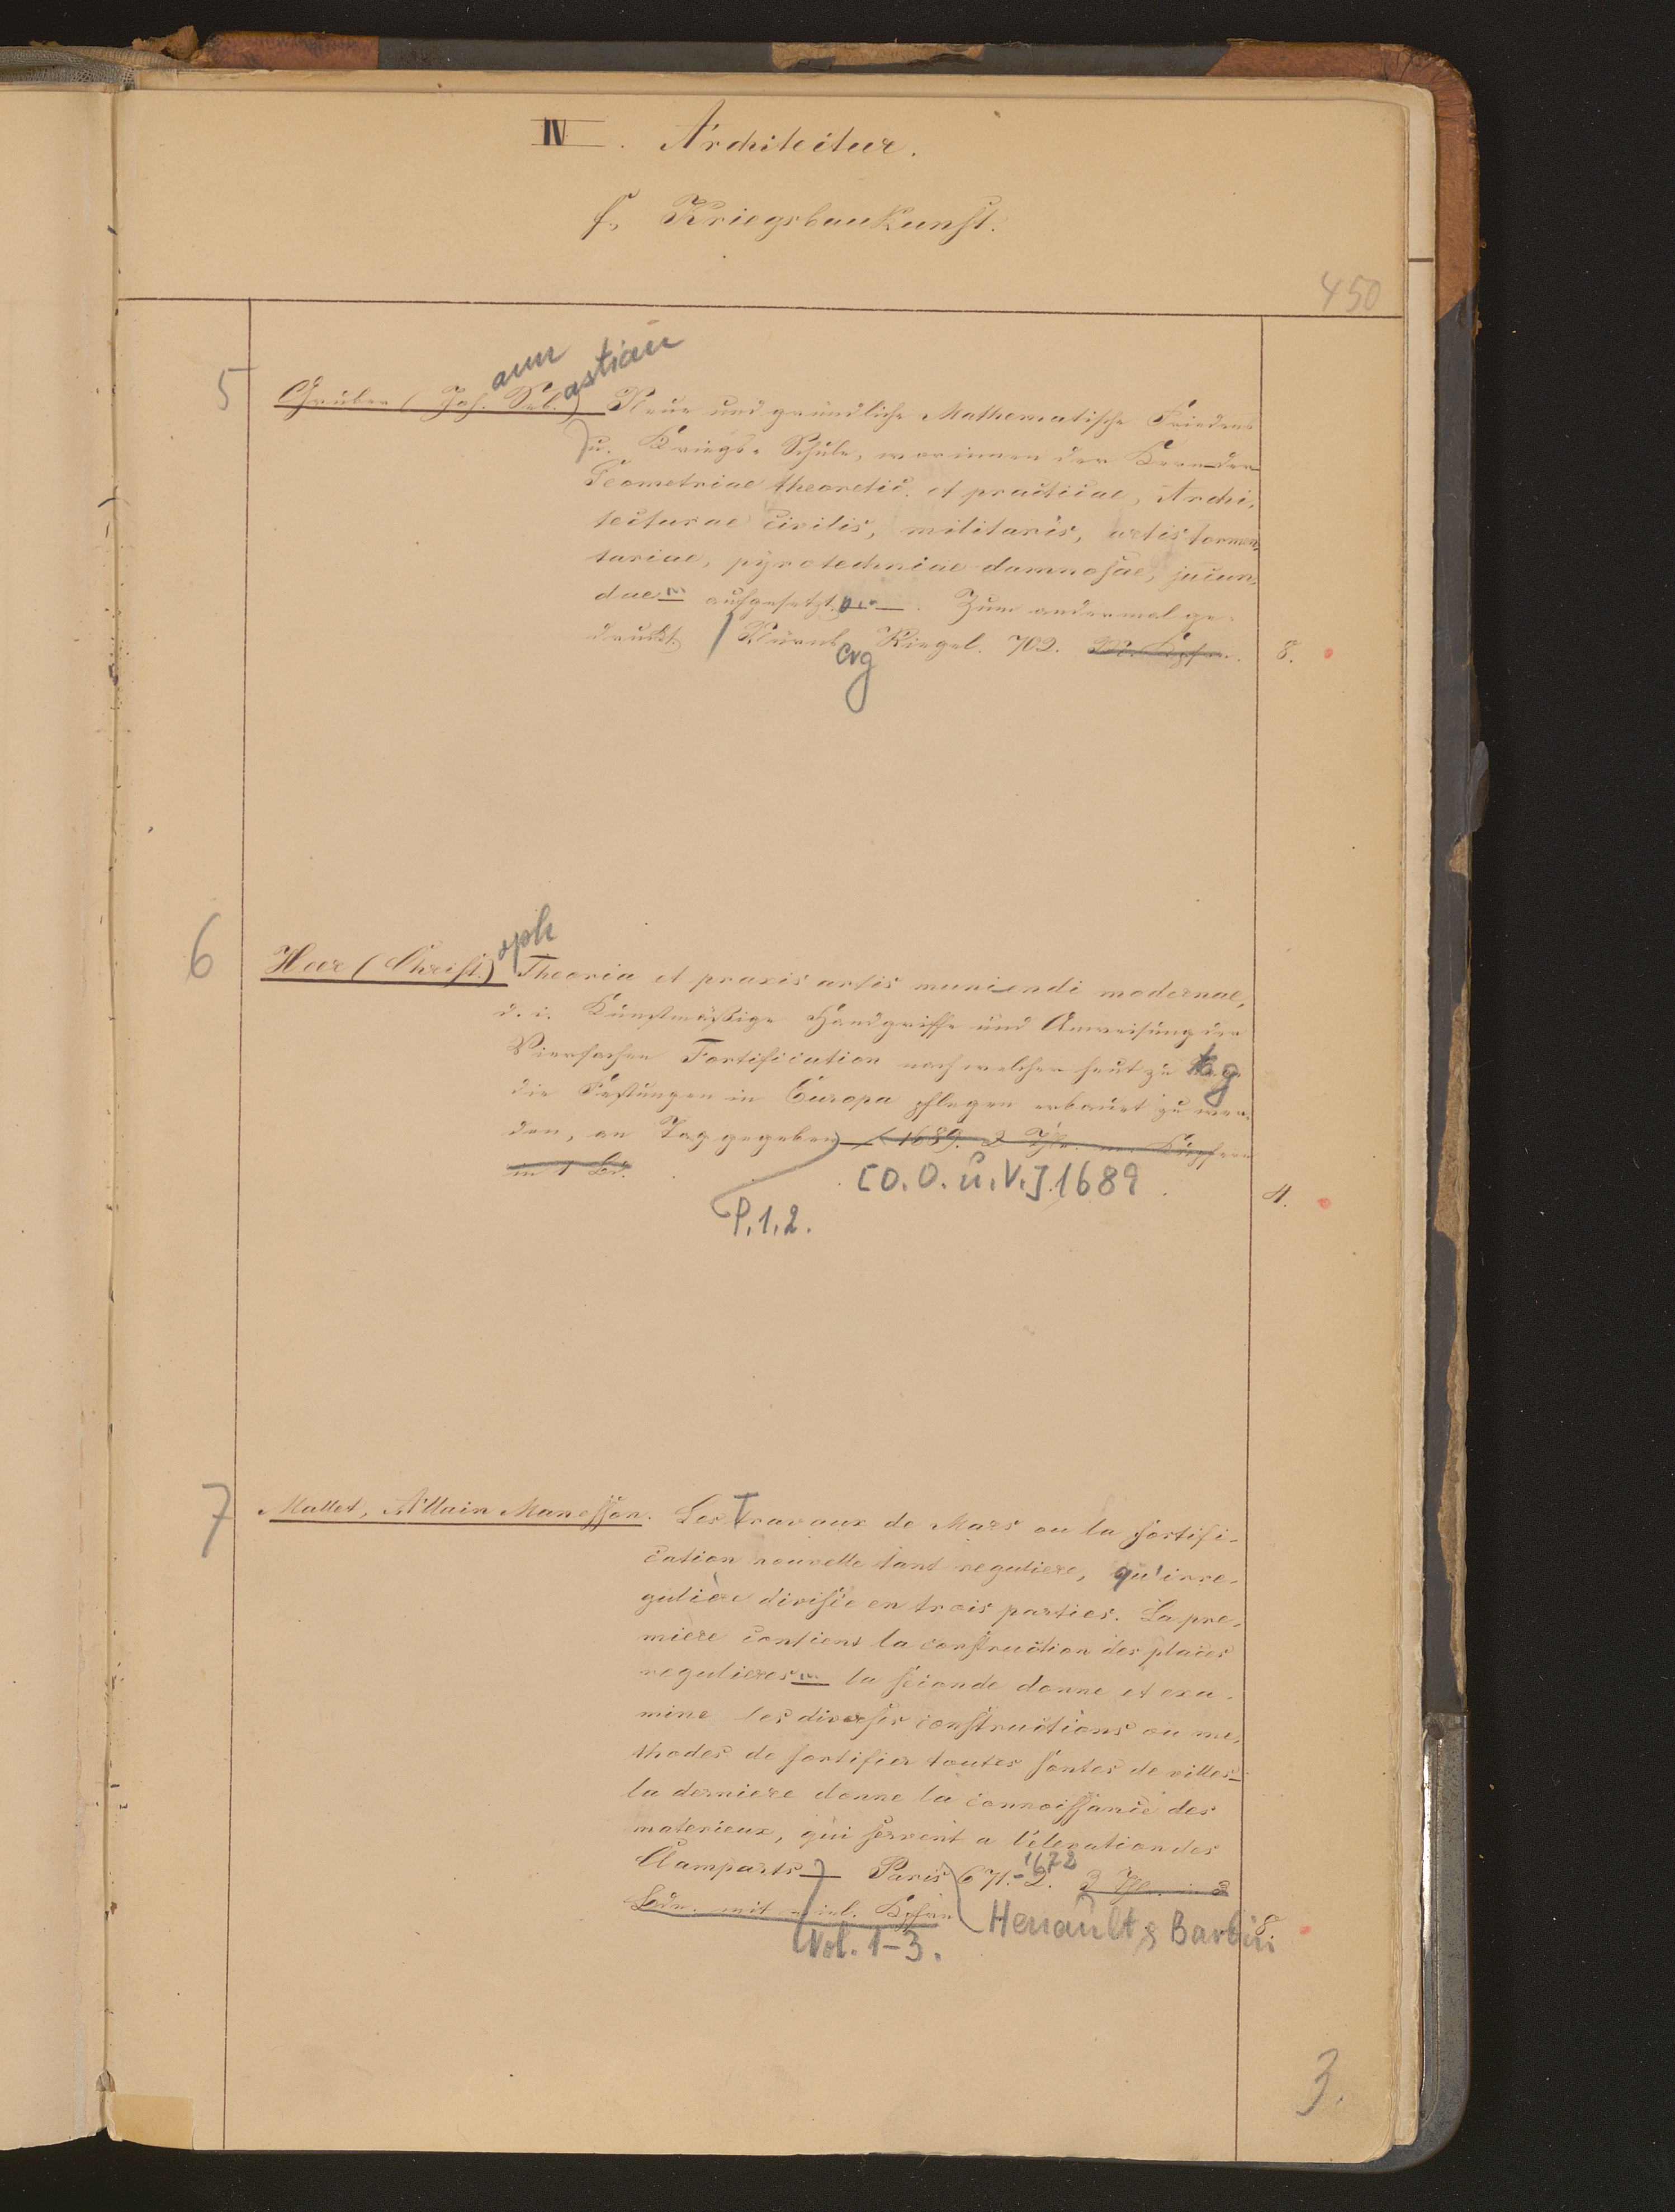 IV. Architectur.
f., Kriegsbaukunst.
450
ann astian
5 Gruber (Joh. Seb.) Neue und gründliche Mathematische Friedens
u. Kriegs-Schule, worinnen der Kern der
Geometriae theoretic. et practicae, Archi-
tecturae civilis, militaris, artis tormen-
tariae, pyrotechniae damnosae, jucun-
dae aufgesetzt. Zum andermal ge-
druckt Nürnb. Riegel. 702. M. Kpfrn. 8.
erg
oph
6 Heer (Christ.) Theoria et praxis artis muniendi modernae,
d. i. Kunstmäßige Handgriffe und Anweisung der
Vierfachen Fortification nach welcher heut zu Tag
die Festungen in Europa pflegen erbauet zu wer-
den, an Tag gegeben 1689. 2 Thle. Kupfern
in 1 Bd.
[O. O. u. V.] 1689
4.
P. 1, 2.
7 Mallet, Allain Manesson. Les Travaux de Mars ou la fortifi-
cation nouvelle tant reguliere, qu'irre-
gulière divisée en trois parties. La pre-
miere contient la construction des places
regulieres la seconde donne et exa-
mine les diverses constructions ou me-
thodes de fortifier toutes sortes de villes
la derniere donne la connoissance des
materieux, qui servent a l'elevation des
Ramparts Paris 671.-2. 3 Thle. in 3
1672
Bdn. mit viel. Kpfrn.
Henault & Barbin 8.
Vol. 1-3.
3.